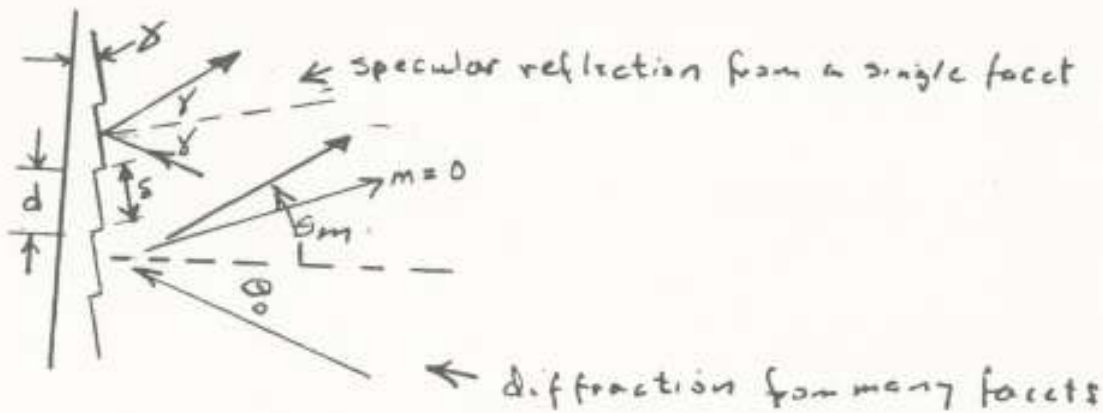 γ
← specular reflection from a single facet
γ
γ
m = 0
d
s
θm
θ0
← diffraction from many facets